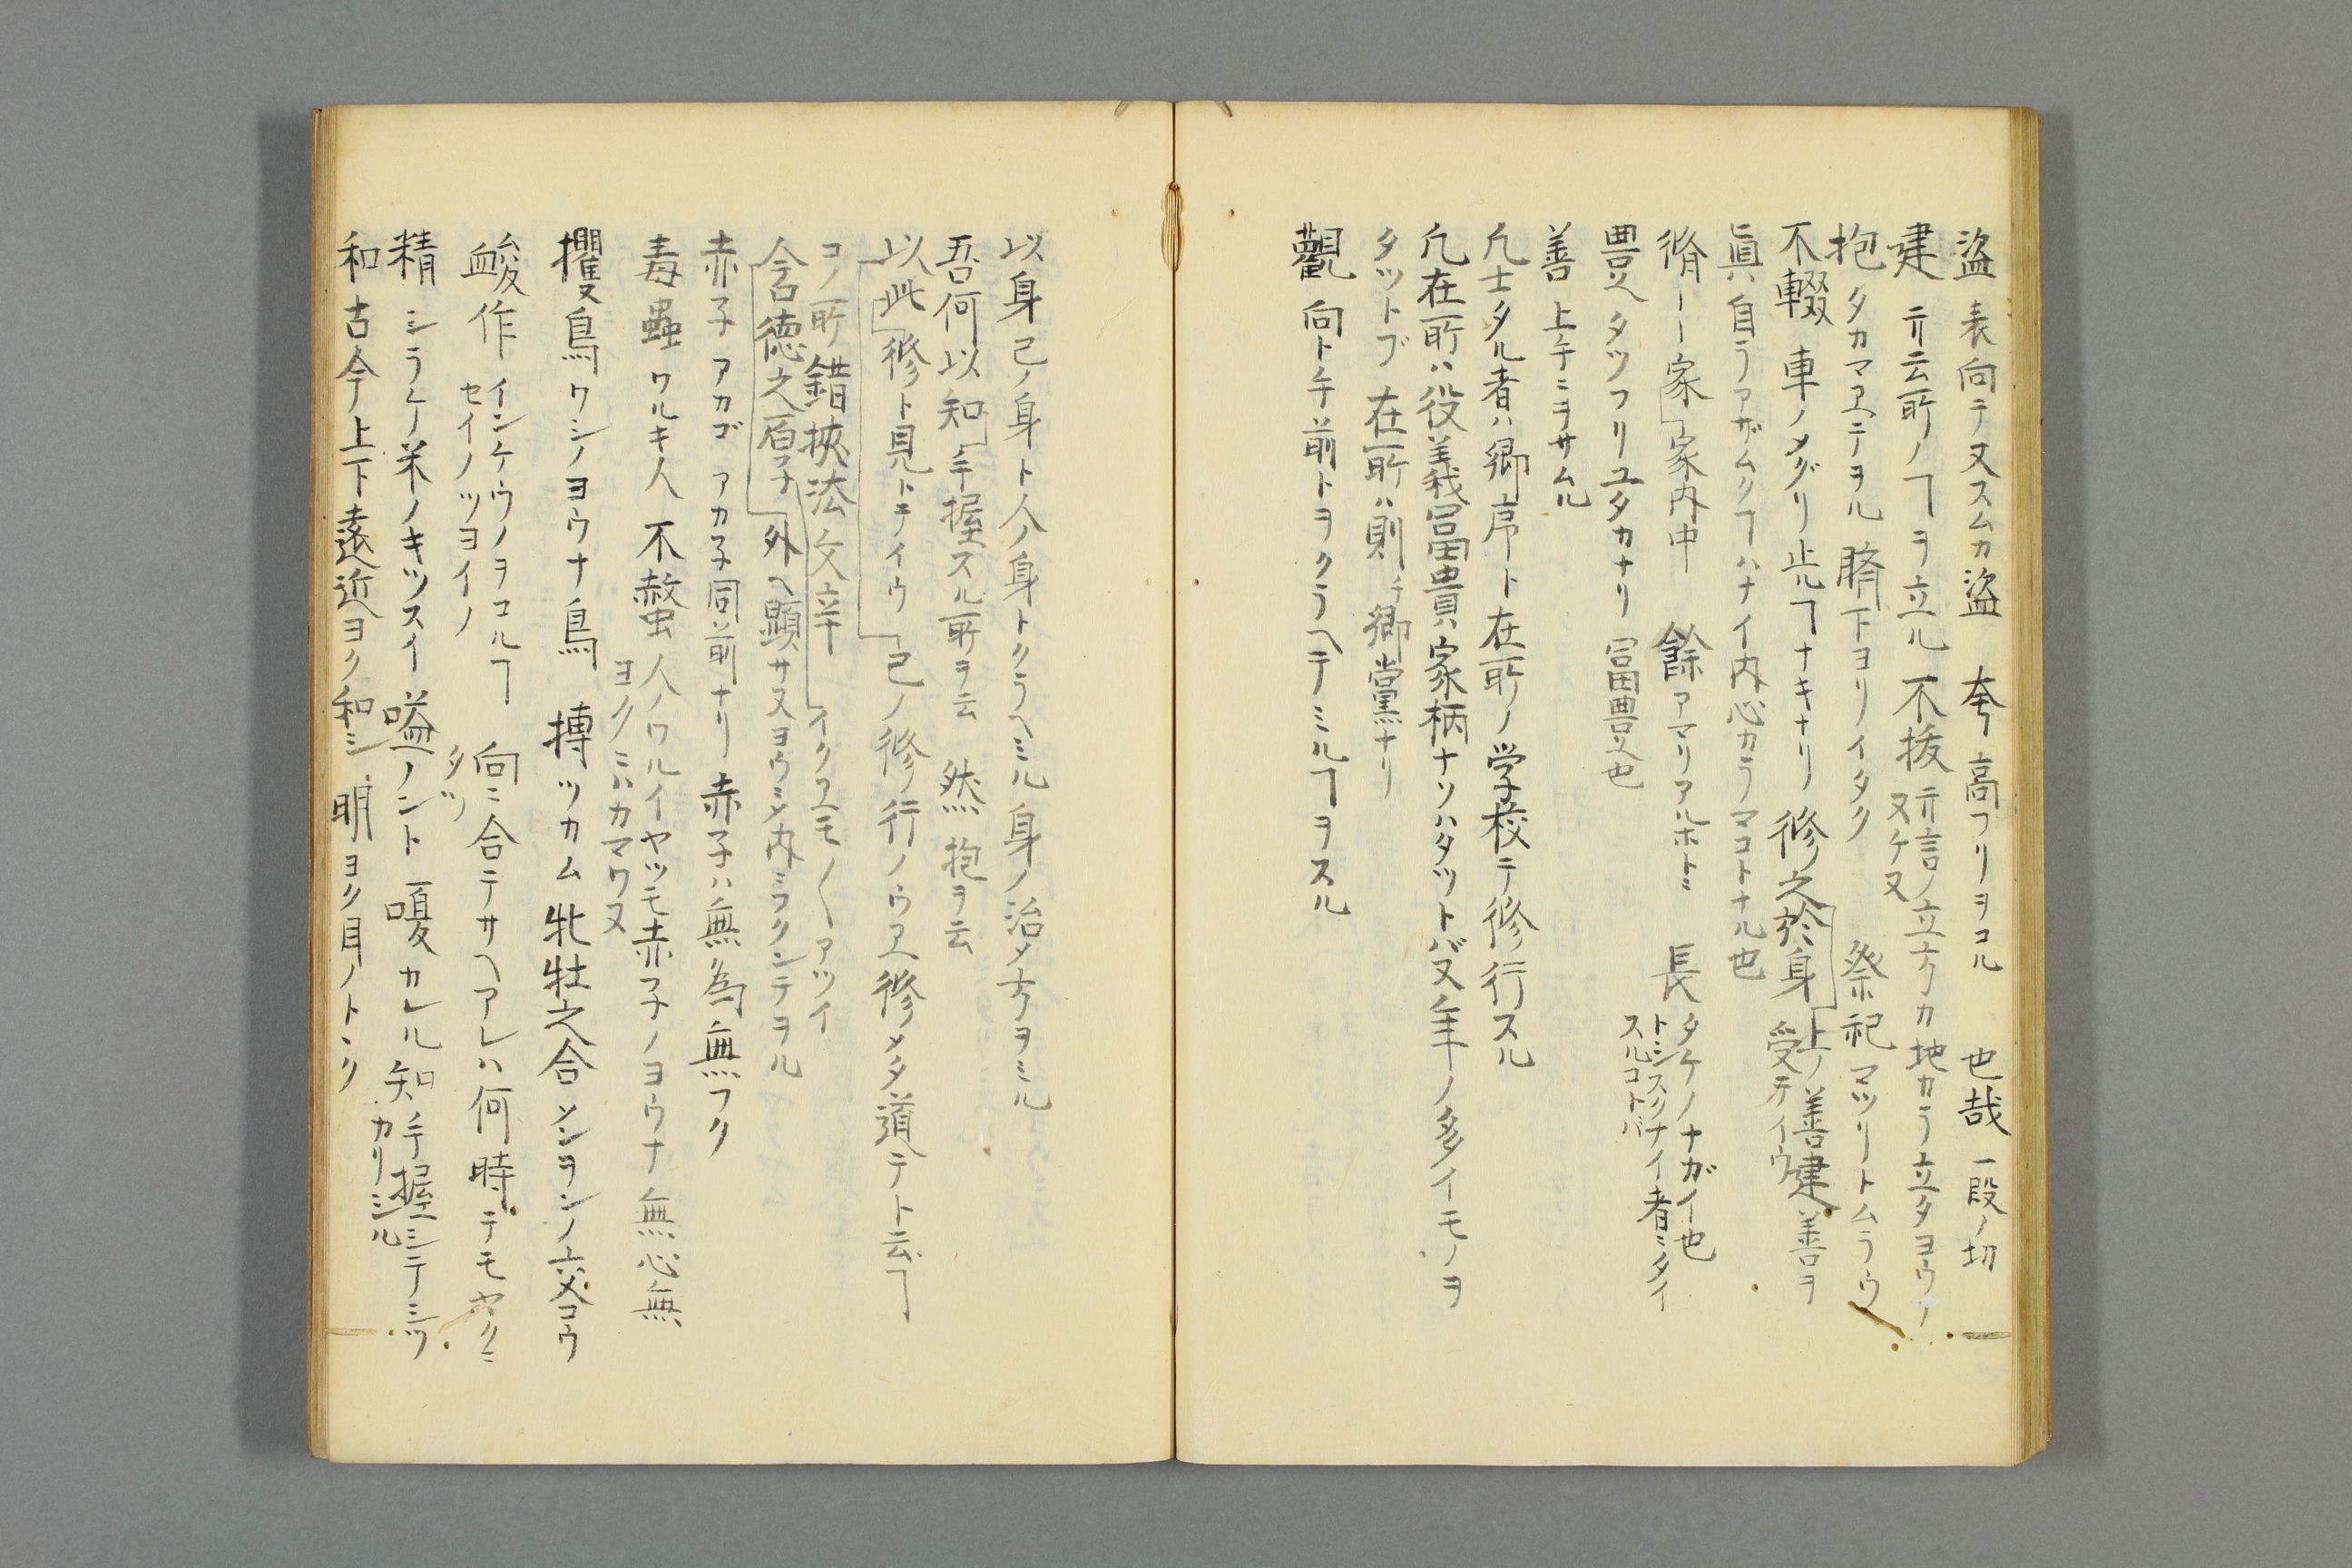 盗 表向テ又スムカ盗 夸 高フリヲコル 也哉 一段ノ切
建 亓云所ノヿヲ立ル 不抜 亓言ノ立方カ地カラ立タヨウノ
ヌケヌ
抱 タカマエテヲル 臍下ヨリイタク 祭祀 マツリトムラウ
不輟 車ノメグリ止ルヿナキナリ 修之於身 上ノ善建善ヲ
受テイウ
眞ハ自ラアザムクヿハナイ内心カラマコトナル也
脩ーー家 家内中 餘 アマリアルホトニ 長 タケノナガイ也
トシスクナイ者ニタイ
スルコトバ
豊 タツフリユタカナリ 冨豊也
善 上手ニヲサムル
凢士タル者ハ郷序ト在所ノ学校テ修行スル
凢在所ハ役義冨貴ハ家柄ナソハタツトバヌ年ノ多イモノヲ
タツトブ 在所ハ則チ郷黨ナリ
觀 向ト手前トヲクラヘテミルヿヲスル
以身 己ノ身ト人ノ身トクラヘミル身ノ治メ方ヲミル
吾何以知 手握スル所ヲ云 然 抱ヲ云
以此 修ト見トテイウ 己ノ修行ノウエ修メタ道テト云ヿ
コノ所錯挾法文辛 イクエモ〱アツイ
含徳之厚 外ヘ顕サヌヨウニメ内ニフクンテヲル
赤子 アカゴ アカ子同前ナリ 赤子ハ無為無フク
毒蟲 ワルキ人 不螫 人ノワルイヤツモ赤子ノヨウナ無心無
ヨクニハカマワヌ
攫鳥 ワシノヨウナ鳥 搏 ツカム 牝牡之合 メンヲンノ交コウ
䘒作 インケウノヲコルヿ
セイノツヨイノ
向ニ合テサヘアレハ何時テモヤクニ
タツ
精 シラケ米ノキツスイ 嗌 ノント 嗄 カレル 知 手握シテミツ
カリシル
和 古今上下遠近ヨク和シ 明 ヨク目ノトヽク